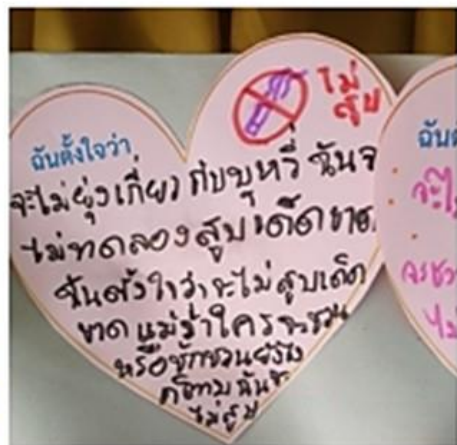 ไม่
สูบ
ฉันตั้งใจว่า
จะไม่ยุ่งเกี่ยว กับบุหรี่ ฉันจะ
ไม่ทดลองสูบ เด็ดขาด
ฉันตั้งใจว่าจะไม่สูบเด็ด
ขาด แม้ว่าใครจะชวน
หรือชักชวนยังไง
ก็ตาม ฉันจะ
ไม่สูบ
ฉันตั
จะไม่
จะชว
ไม่